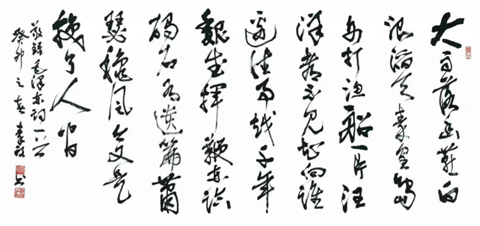 大雨落幽燕白
浪滔天秦皇岛
外打渔船一片汪
洋都不见知向谁
边往事越千年
魏武挥鞭东临
碣石有遗篇萧
瑟秋风今又是
换了人间
敬录毛泽东词一首
癸卯之春 书